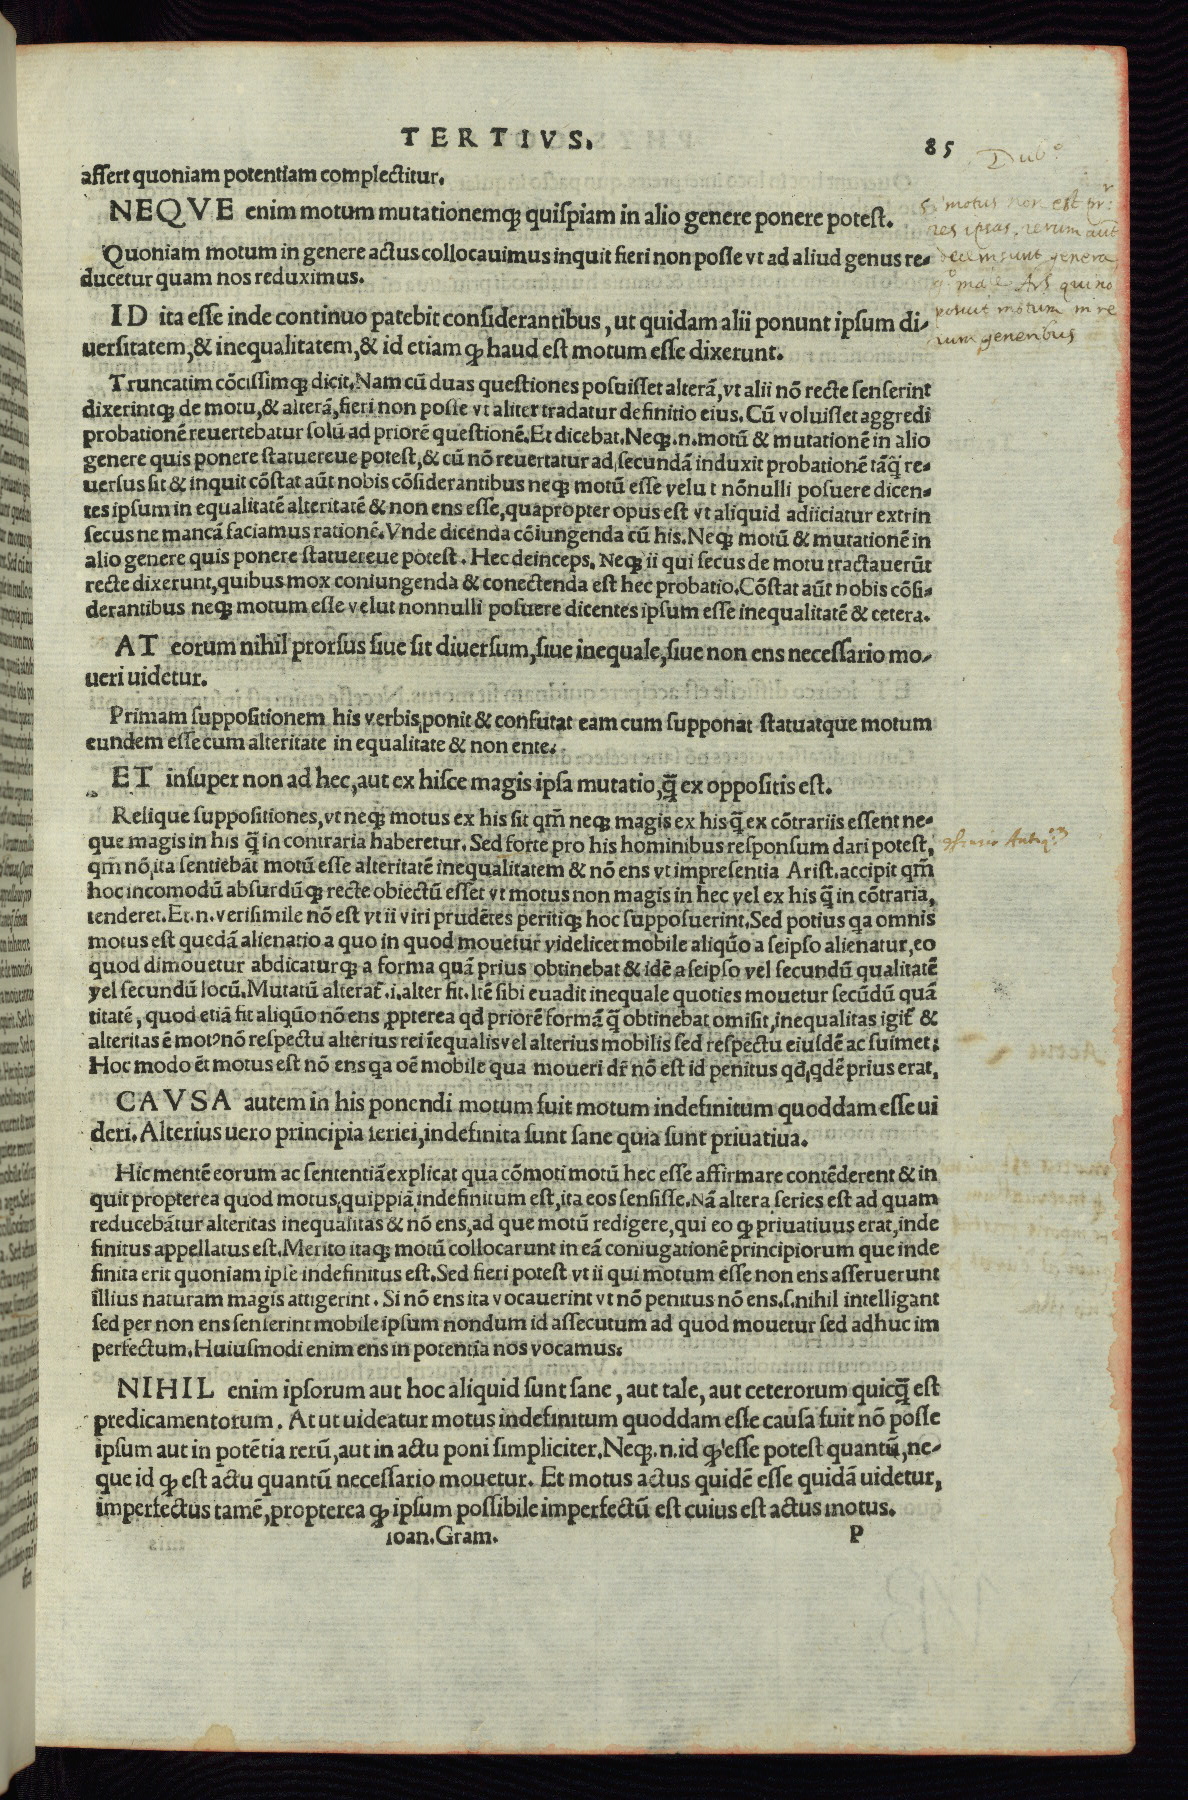 TERTIVS.
85
Dubº
affert quoniam potentiam complectitur.
NEQVE enim motum mutationemq; quispiam in alio genere ponere potest.
Quoniam motum in genere actus collocauimus inquit fieri non posse vt ad aliud genus re-
ducetur quam nos reduximus.
ID ita esse inde continuo patebit considerantibus, ut quidam alii ponunt ipsum di-
uersitatem, & inequalitatem, & id etiam ꝙ haud est motum esse dixerunt.
Si motus non est pr:
res ipsas. rerum aūt
decem sunt genera
posuit motum in re
rum generibus
Truncatim cōcissimq; dicit. Nam cū duas questiones posuisset alterā, vt alii nō recte senserint
dixerintq; de motu, & alterā, fieri non posse vt aliter tradatur definitio eius. Cū voluisset aggredi
probationē reuertebatur solū ad priorē questionē. Et dicebat. Neq; .n. motū & mutationē in alio
genere quis ponere statuereue potest, & cū nō reuertatur ad secundā induxit probationē tāq̄ re-
uersus sit & inquit cōstat aūt nobis cōsiderantibus neq; motū esse velut nōnulli posuere dicen-
tes ipsum in equalitatē alteritatē & non ens esse, quapropter opus est vt aliquid adiiciatur extrin
secus ne mancā faciamus rationē. Vnde dicenda cōiungenda cū his. Neq; motū & mutationē in
alio genere quis ponere statuereue potest. Hec deinceps. Neq; ii qui secus de motu tractauerūt
recte dixerunt, quibus mox coniungenda & conectenda est hec probatio. Cōstat aūt nobis cōsi-
derantibus neq; motum esse velut nonnulli posuere dicentes ipsum esse inequalitatē & cetera.
AT eorum nihil prorsus siue sit diuersum, siue inequale, siue non ens necessario mo-
ueri uidetur.
Primam suppositionem his verbis ponit & confutat eam cum supponat statuatque motum
eundem esse cum alteritate in equalitate & non ente.
ET insuper non ad hec, aut ex hisce magis ipsa mutatio, q̄ ex oppositis est.
Relique suppositiones, vt neq; motus ex his sit qm̄ neq; magis ex his q̄ ex cōtrariis essent ne-
que magis in his q̄ in contraria haberetur. Sed forte pro his hominibus responsum dari potest,
qm̄ nō ita sentiebāt motū esse alteritatē inequalitatem & nō ens vt impresentia Arist. accipit qm̄
hoc incomodū absurdūq; recte obiectū esset vt motus non magis in hec vel ex his q̄ in cōtraria,
tenderet. Et .n. verisimile nō est vt ii viri prudētes peritiq; hoc supposuerint. Sed potius qa omnis
motus est quedā alienatio a quo in quod mouetur videlicet mobile aliquo a seipso alienatur, eo
quod dimouetur abdicaturq; a forma quā prius obtinebat & idē a seipso vel secundū qualitatē
vel secundū locū. Mutatū alterat̄ .i. alter fit. Itē sibi euadit inequale quoties mouetur secūdū quā
titatē, quod etiā fit aliquo nō ens ꝓpterea qd̄ priorē formā q̄ obtinebat omisit, inequalitas igit̄ &
alteritas ē motꝰ nō respectu alterius rei īequalis vel alterius mobilis sed respectu eiusdē ac suimet;
Hoc modo ēt motus est nō ens qa oē mobile qua moueri dr̄ nō est id penitus qd̄, qdē prius erat.
CAVSA autem in his ponendi motum fuit motum indefinitum quoddam esse ui
deri. Alterius uero principia seriei, indefinita sunt sane quia sunt priuatiua.
Hic mentē eorum ac sententiā explicat qua cōmoti motū hec esse affirmare contēderent & in
quit propterea quod motus, quippiā indefinitum est, ita eos sensisse. Nā altera series est ad quam
reducebātur alteritas inequalitas & nō ens, ad que motū redigere, qui eo ꝙ priuatiuus erat, inde
finitus appellatus est. Merito itaq; motū collocarunt in eā coniugationē principiorum que inde
finita erit quoniam ipse indefinitus est. Sed fieri potest vt ii qui motum esse non ens asseruerunt
illius naturam magis attigerint. Si nō ens ita vocauerint vt nō penitus nō ens .s. nihil intelligant
sed per non ens senserint mobile ipsum nondum id assecutum ad quod mouetur sed adhuc im
perfectum. Huiusmodi enim ens in potentia nos vocamus.
NIHIL enim ipsorum aut hoc aliquid sunt sane, aut tale, aut ceterorum quicq̄ est
predicamentorum. At ut uideatur motus indefinitum quoddam esse causa fuit nō posse
ipsum aut in potētia rerū, aut in actu poni simpliciter. Neq; .n. id ꝙ esse potest quantū, ne-
que id ꝙ est actu quantū necessario mouetur. Et motus actus quidē esse quidā uidetur,
imperfectus tamē, propterea ꝙ ipsum possibile imperfectū est cuius est actus motus.
Ioan. Gram.
P